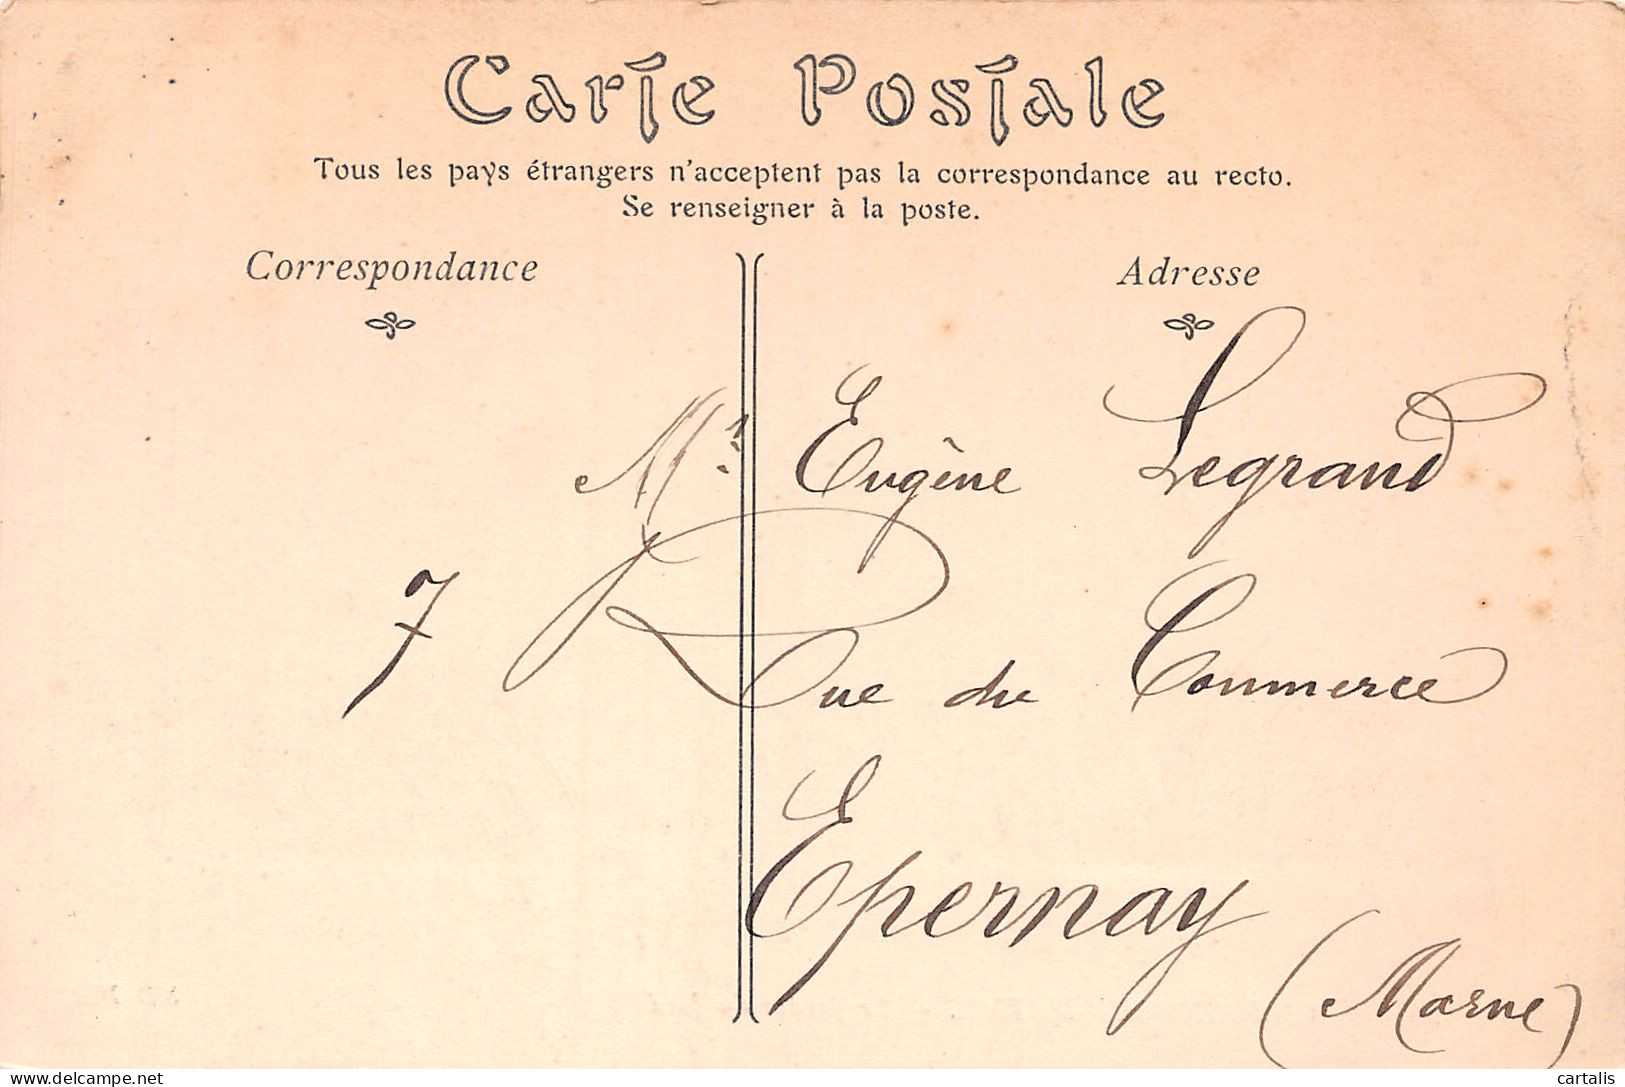 Carte Postale
Tous les pays étrangers n'acceptent pas la correspondance au recto.
Se renseigner à la poste.
Correspondance
Adresse
Mr Eugène Legrand
7 Rue du Commerce
Epernay
(Marne)
delcampe.net
cartalis